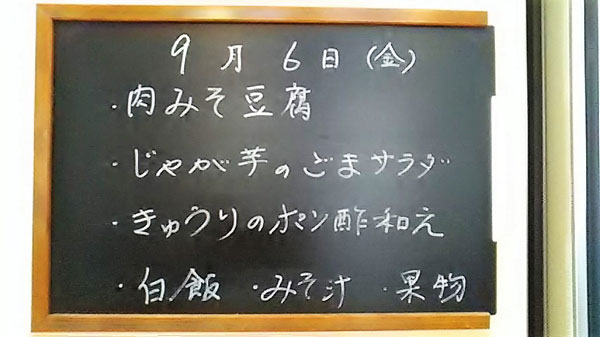 9月6日(金)
・肉みそ豆腐
・じゃが芋のごまサラダ
・きゅうりのポン酢和え
・白飯 ・みそ汁 ・果物